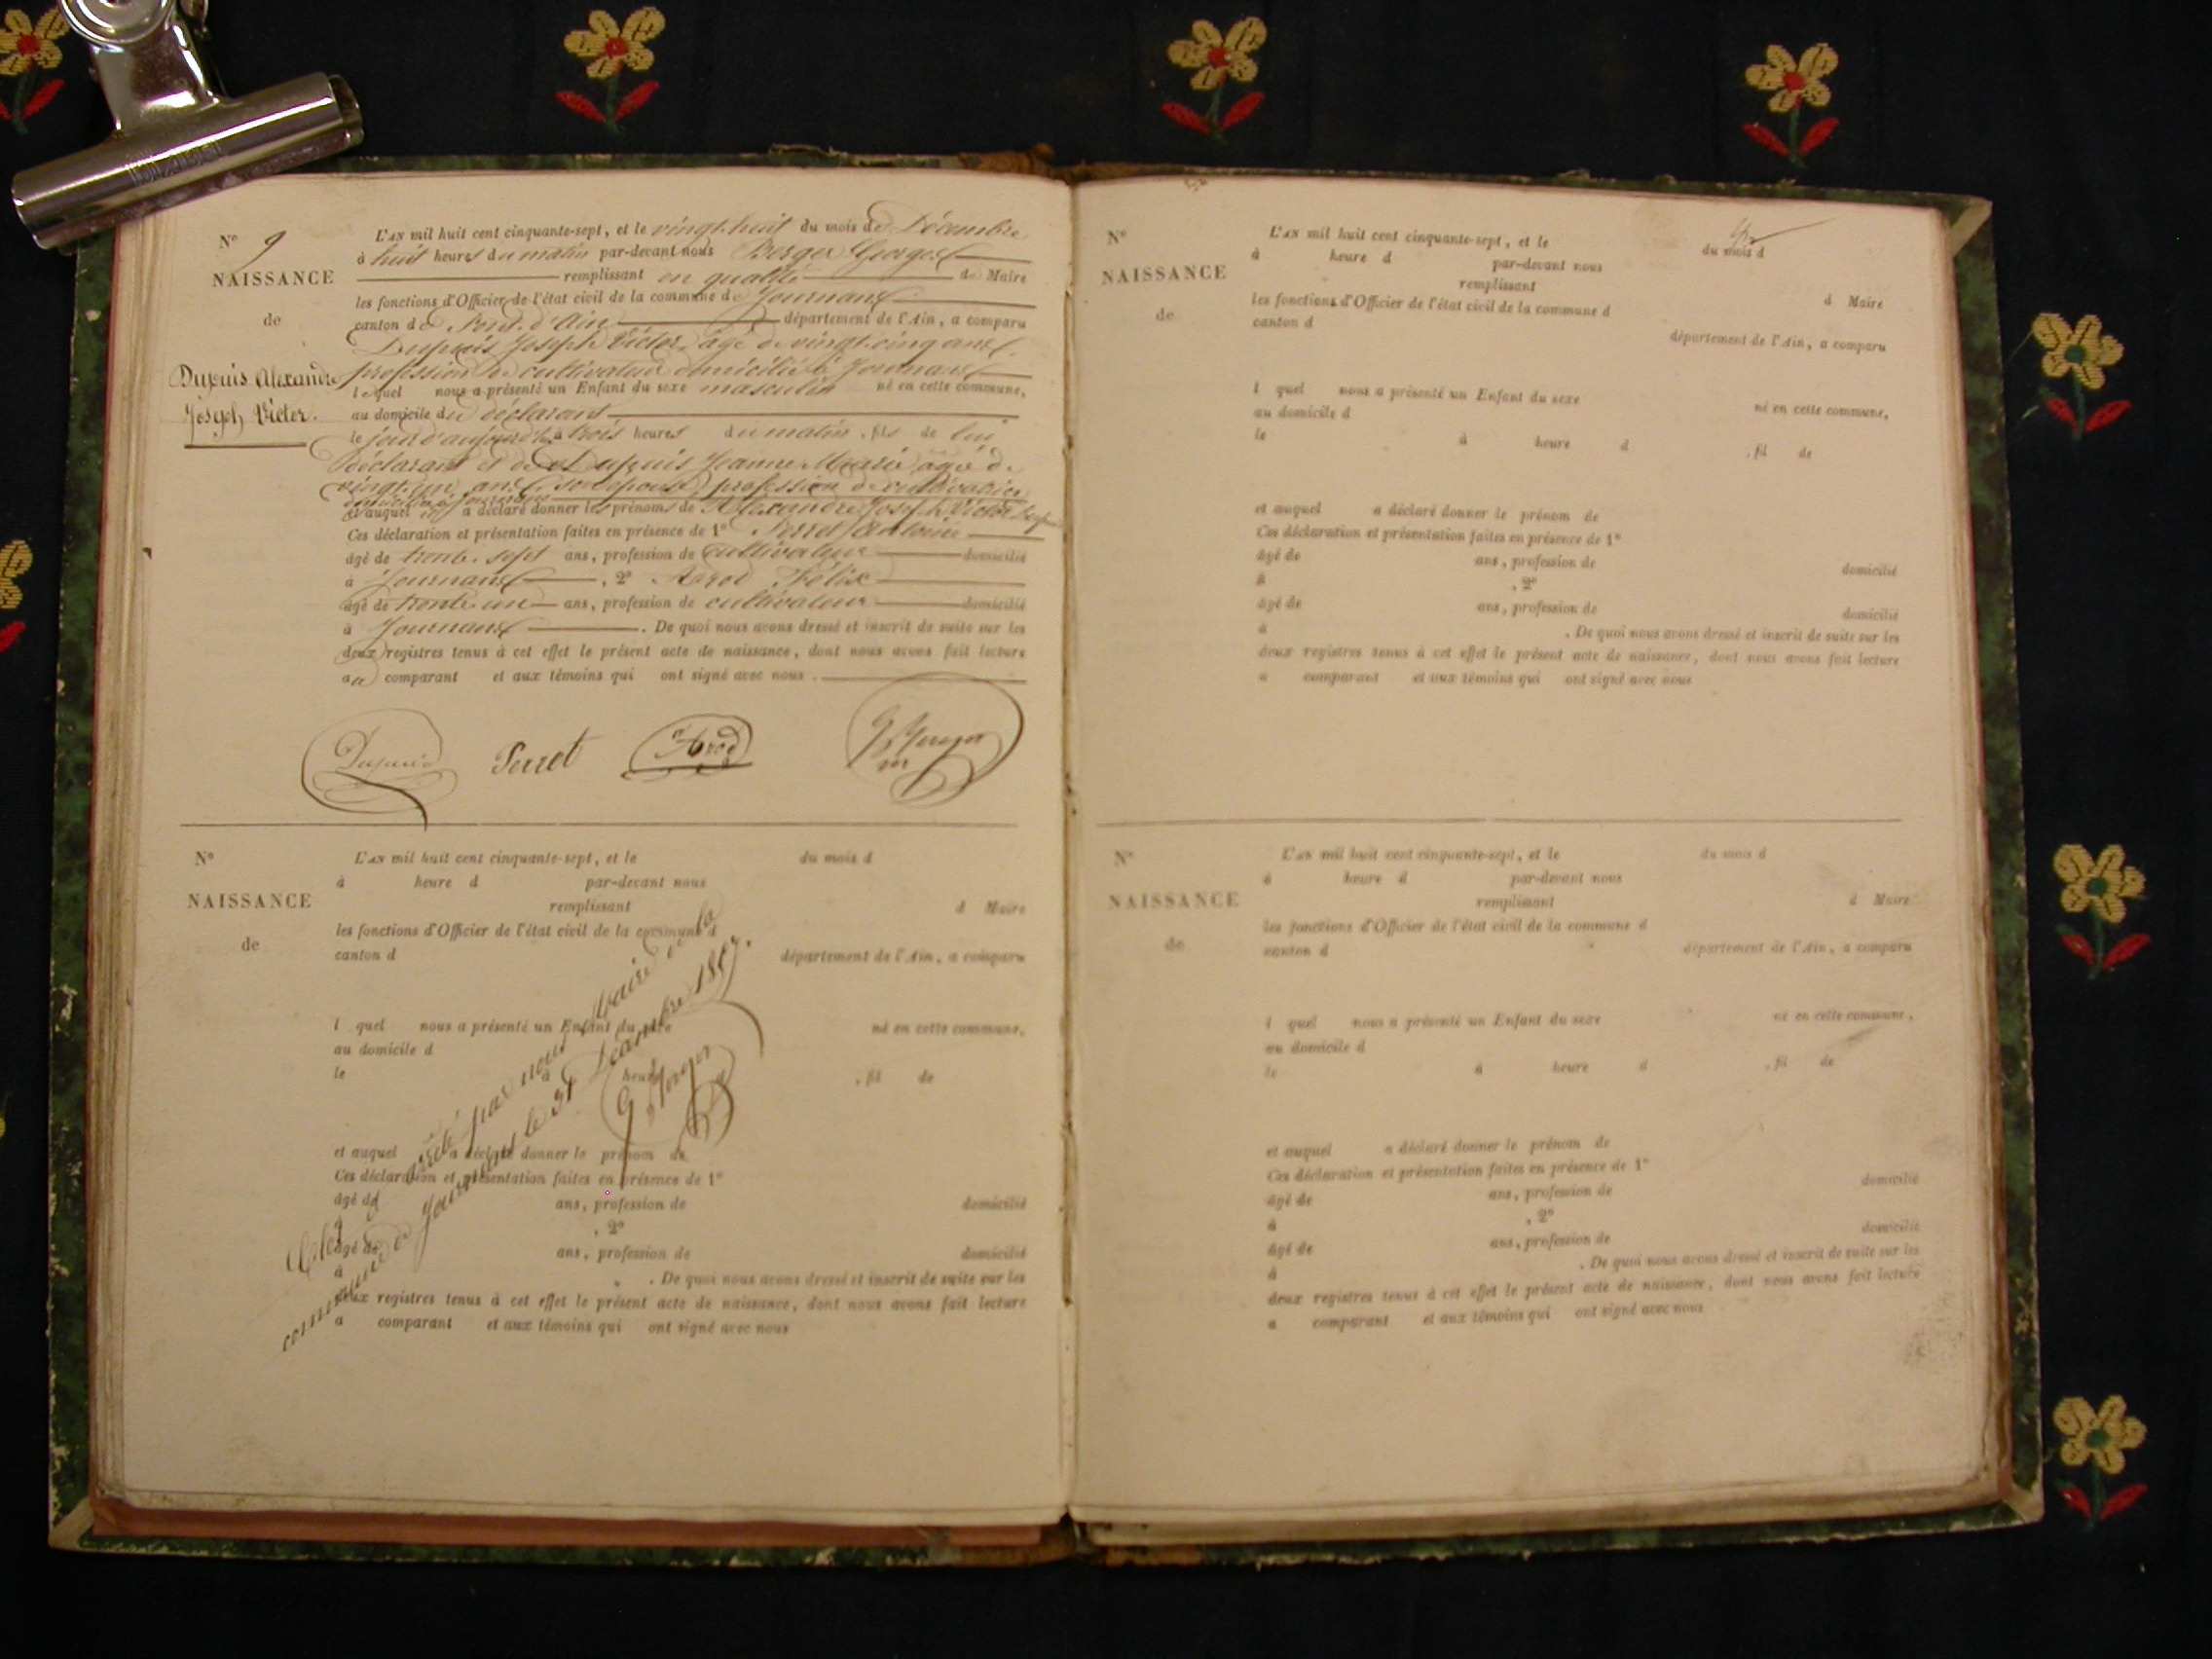 N° 9
NAISSANCE
de
Dupuis Alexandre
Joseph Victor.
L'AN mil huit cent cinquante-sept, et le vingt-huit du mois de Décembre
à huit heures du matin par-devant nous Berger Georges
remplissant en qualité de Maire
les fonctions d'Officier de l'état civil de la commune de Journans
canton de Pont-d'Ain département de l'Ain, a comparu
Dupuis Joseph Victor, agé de vingt-cinq ans
profession de cultivateur domicilié à Journans
lequel nous a présenté un Enfant du sexe masculin né en cette commune,
au domicile du déclarant
le jour d'aujourd'hui à trois heures du matin, fils de lui
déclarant et de Dupuis Jeanne Marie agé de
vingt-un ans son épouse, profession de cultivatrice
domiciliée à Journans
et auquel il a déclaré donner les prénoms de Alexandre Joseph Victor
Ces déclaration et présentation faites en présence de 1° Perret Antoine
âgé de trente-sept ans, profession de cultivateur domicilié
à Journans, 2° Arod Félix
âgé de trente-un ans, profession de cultivateur domicilié
à Journans. De quoi nous avons dressé et inscrit de suite sur les
deux registres tenus à cet effet le présent acte de naissance, dont nous avons fait lecture
au comparant et aux témoins qui ont signé avec nous.
Dupuis Perret Arod G Berger
N°
NAISSANCE
de
L'AN mil huit cent cinquante-sept, et le du mois d
à heure d par-devant nous
remplissant d Maire
les fonctions d'Officier de l'état civil de la commune d
canton d département de l'Ain, a comparu
l quel nous a présenté un Enfant du sexe né en cette commune,
au domicile d
le à heure , fil de
et auquel a déclaré donner le prénom de
Ces déclaration et présentation faites en présence de 1°
âgé de ans, profession de domicilié
à , 2°
âgé de ans, profession de domicilié
à . De quoi nous avons dressé et inscrit de suite sur les
deux registres tenus à cet effet le présent acte de naissance, dont nous avons fait lecture
a comparant et aux témoins qui ont signé avec nous
Clos et arrêté par nous Maire de la
commune de Journans le 31 Décembre 1857.
G Berger
N°
NAISSANCE
de
L'AN mil huit cent cinquante-sept, et le du mois d
à heure d par-devant nous
remplissant d Maire
les fonctions d'Officier de l'état civil de la commune d
canton d département de l'Ain, a comparu
l quel nous a présenté un Enfant du sexe né en cette commune,
au domicile d
le à heure d , fil de
et auquel a déclaré donner le prénom de
Ces déclaration et présentation faites en présence de 1°
âgé de ans, profession de domicilié
à , 2°
âgé de ans, profession de domicilié
à . De quoi nous avons dressé et inscrit de suite sur les
deux registres tenus à cet effet le présent acte de naissance, dont nous avons fait lecture
a comparant et aux témoins qui ont signé avec nous
N°
NAISSANCE
de
L'AN mil huit cent cinquante-sept, et le du mois d
à heure d par-devant nous
remplissant d Maire
les fonctions d'Officier de l'état civil de la commune d
canton d département de l'Ain, a comparu
l quel nous a présenté un Enfant du sexe né en cette commune,
au domicile d
le à heure d , fil de
et auquel a déclaré donner le prénom de
Ces déclaration et présentation faites en présence de 1°
âgé de ans, profession de domicilié
à , 2°
âgé de ans, profession de domicilié
à . De quoi nous avons dressé et inscrit de suite sur les
deux registres tenus à cet effet le présent acte de naissance, dont nous avons fait lecture
a comparant et aux témoins qui ont signé avec nous